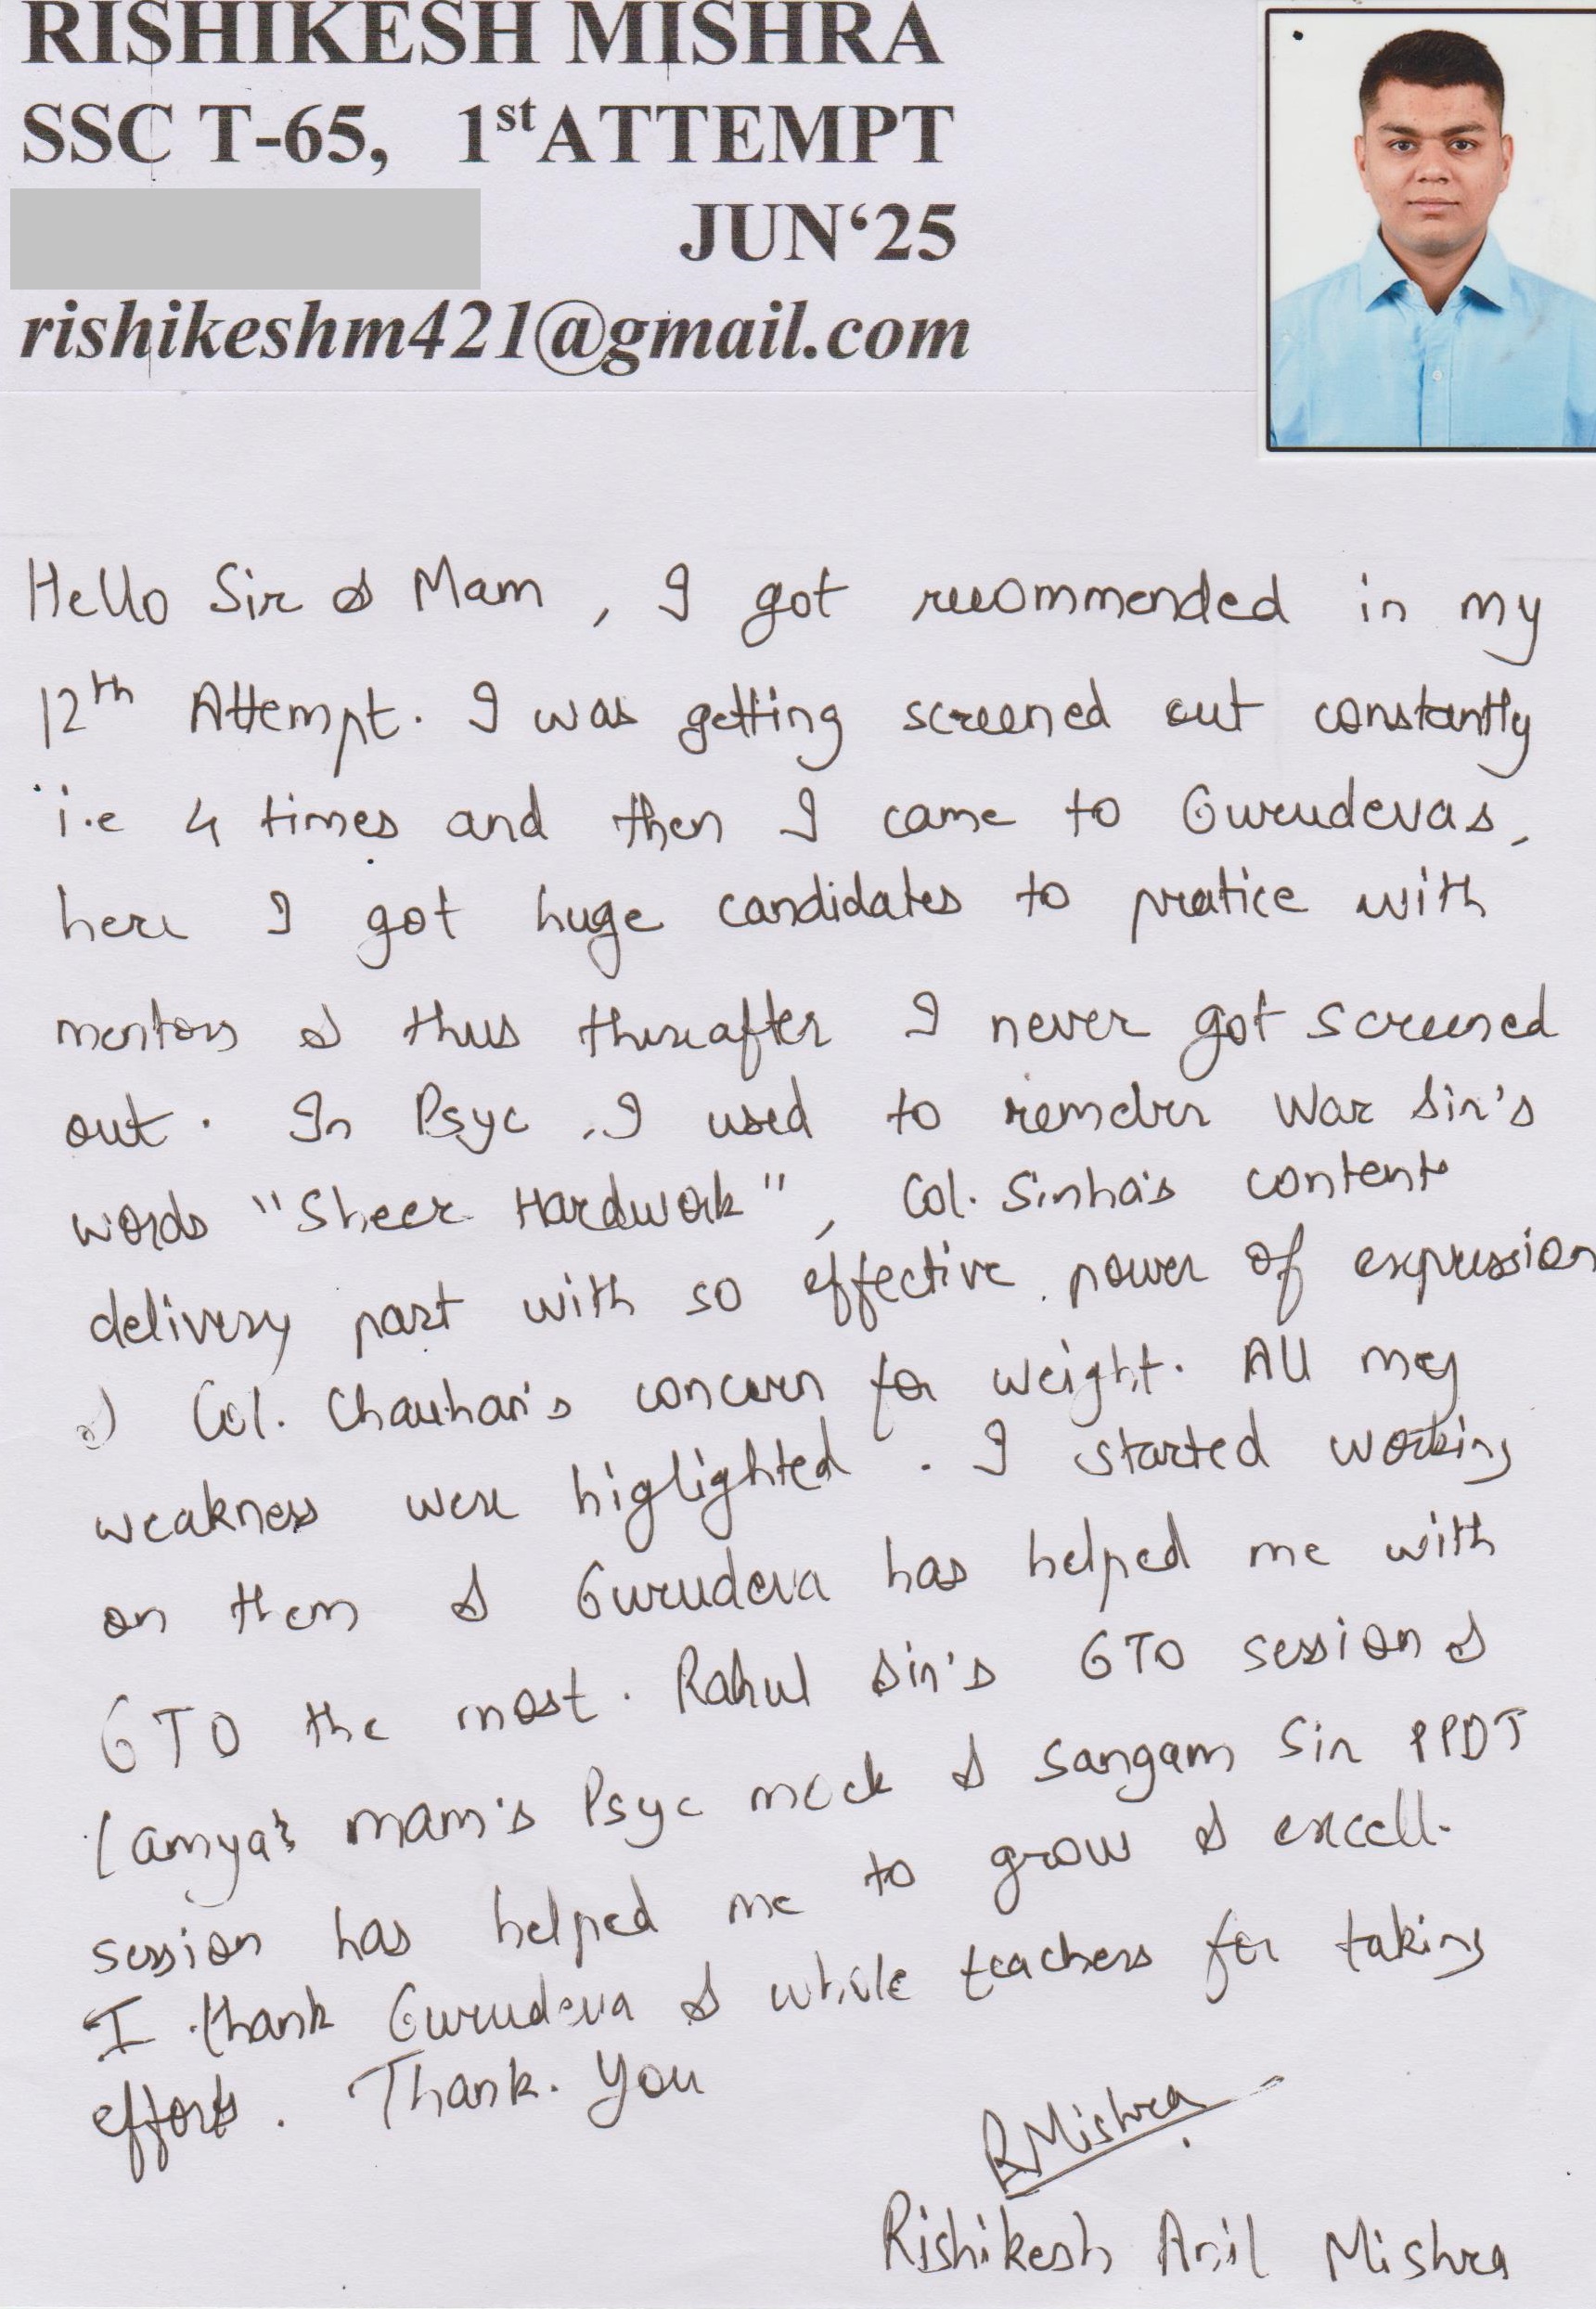 RISHIKESH MISHRA
SSC T-65, 1st ATTEMPT
JUN‘25
rishikeshm421@gmail.com
Hello Sir & Mam, I got recommended in my
12th Attempt. I was getting screened out constantly
i.e 4 times and then I came to Gurudevas,
here I got huge candidates to pratice with
mentors & thus thereafter I never got screened
out. In Psyc, I used to War Sir's
words "Sheer Hardwork", Col. Sinha's content
delivery part with so effective power of expression
& Col. Chauhan's concern for weight. All my
weakness were higlighted. I started working
on them & Gurudeva has helped me with
GTO the most. Rahul Sir's GTO session &
mam's Psyc mock & Sangam Sir PPDT
session has helped me to grow & excell.
I thank Gurudeva & whole teachers for taking
efforts. Thank. You
RMishra
Rishikesh Anil Mishra